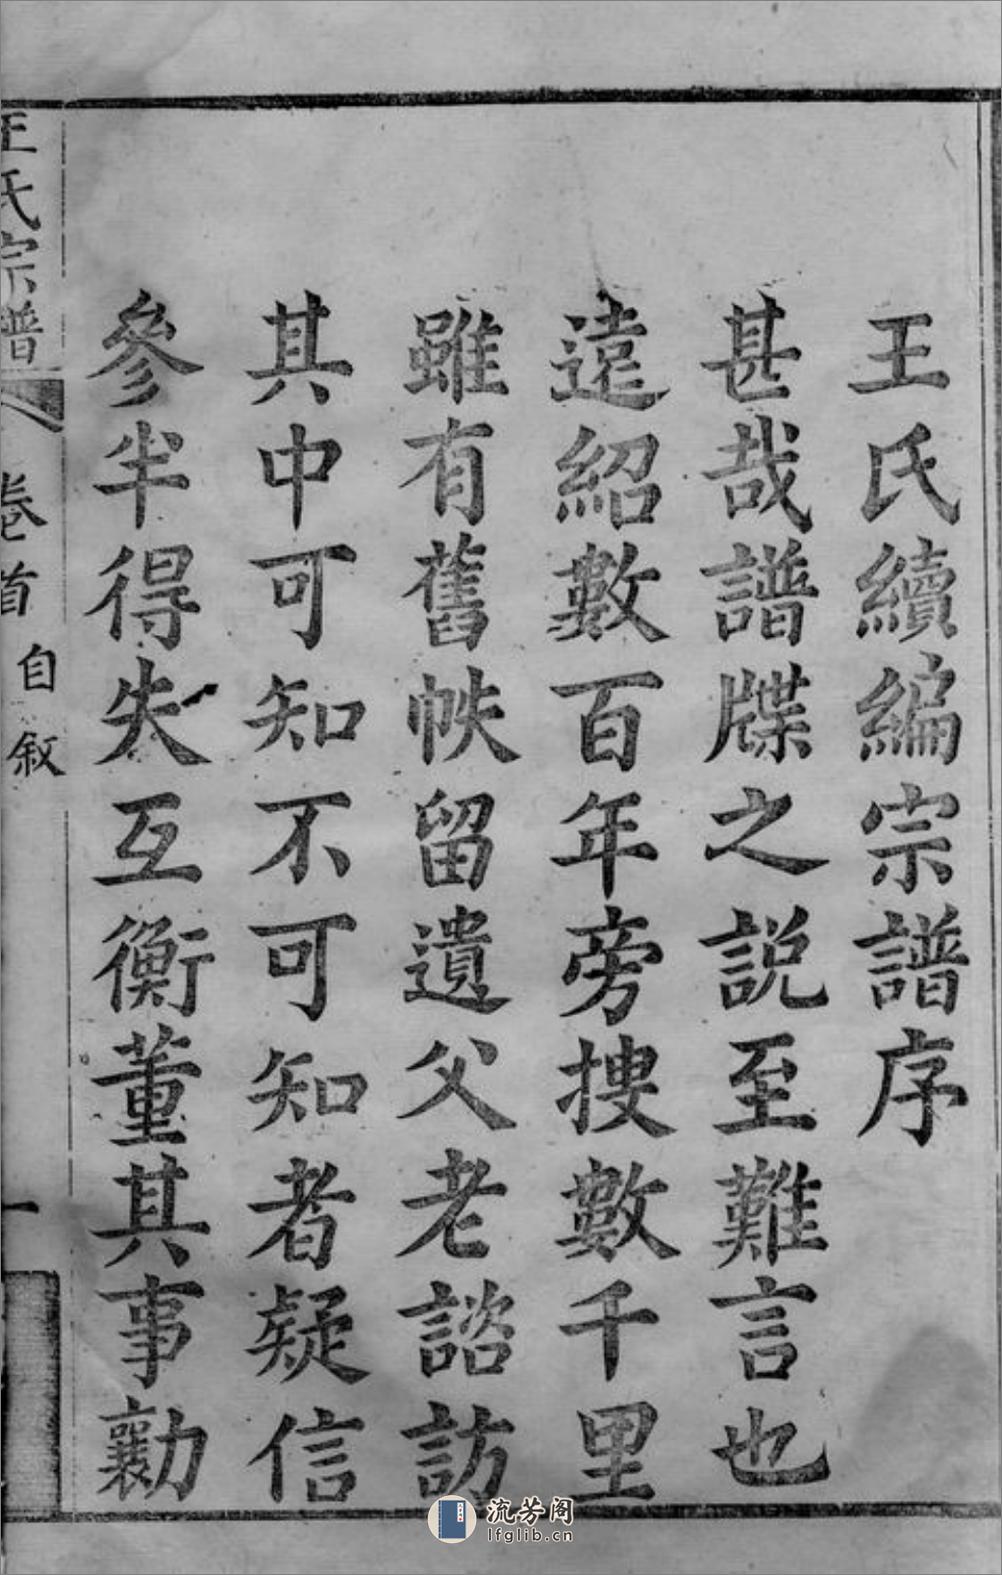 王氏續編宗譜序
甚哉譜牒之説至難言也
遠紹數百年旁搜數千里
雖有舊帙留遺父老諮訪
其中可知不可知者疑信
參半得失互衡董其事勷
王氏宗譜
卷首
自敘
一
流芳阁
lfglib.cn